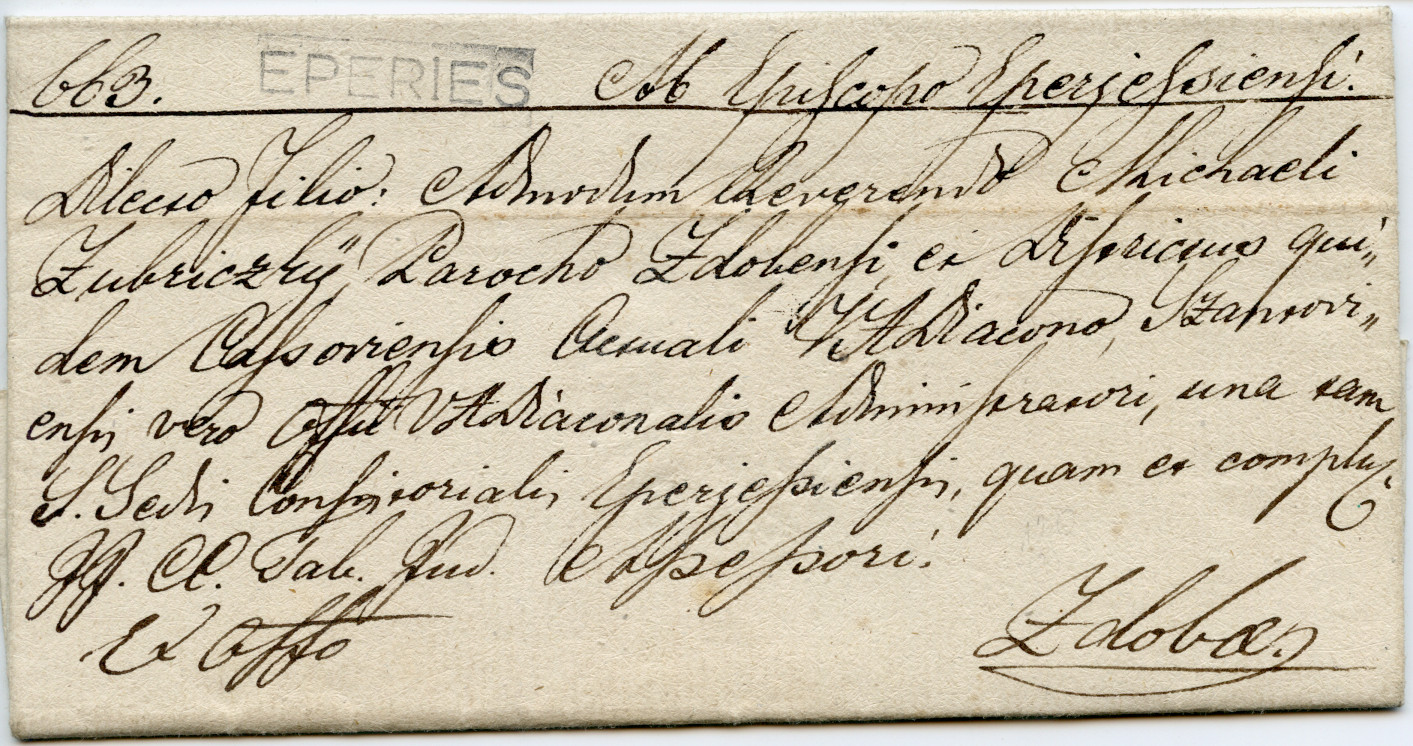 663. EPERIES Ab Episcopo Eperjessiensi.
Dilecto Filio: Admodum Reverendo Michaeli
Zubriczky, Parocho Zdobensi, et Districtus qui„
dem Cassoviensis Actuali VADiacono, Szántovi„
ensi, vero Offii VADiaconalis Administratori, una tam
S. Sedis Consistorialis Eperjessiensis, quam et complu.
JJ. CC. Tab. Jud. Assessori.
Ex Offo Zdobæ.